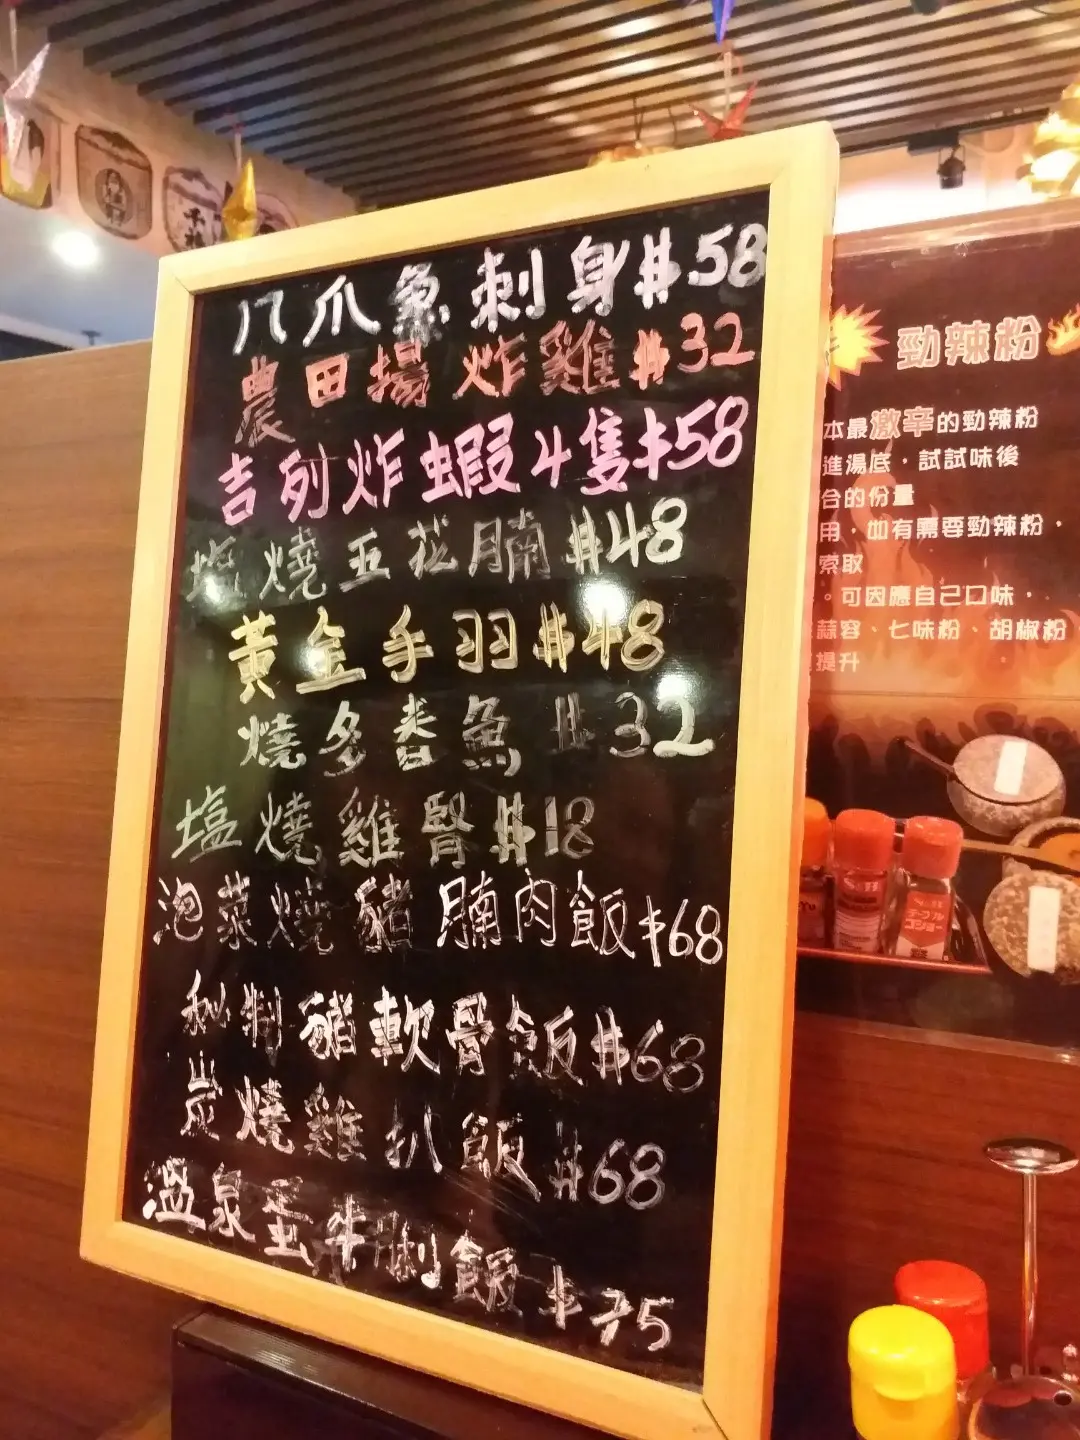 八爪魚刺身$58
農田揚炸雞$32
吉列炸蝦4隻$58
塩燒五花腩$48
黃金手羽$48
燒多春魚$32
塩燒雞腎$18
泡菜燒豬腩肉飯$68
秘制豬軟骨飯$68
炭燒雞扒飯$68
溫泉蛋牛 飯$75
勁辣粉
本最激辛的勁辣粉
進湯底,試試味後
合的份量
用,如有需要勁辣粉,
索取
。可因應自己口味,
蒜容、七味粉、胡椒粉
提升
S&B
S&B
テーブル
コショー